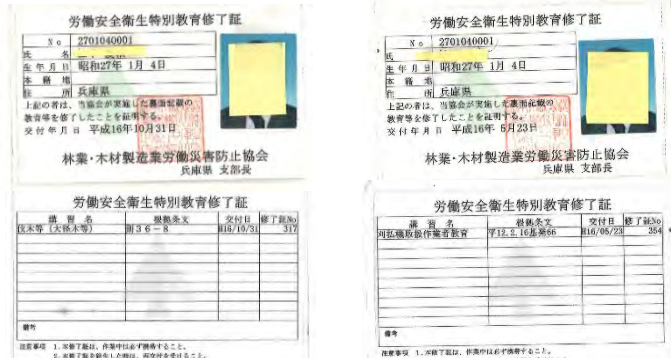 労働安全衛生特別教育修了証
No 2701040001
氏 名
生年月日 昭和27年 1月 4日
本籍地
住 所 兵庫県
上記の者は、当協会が実施した裏面記載の
教育等を修了したことを証明する。
交付年月日 平成16年10月31日
林業・木材製造業労働災害防止協会
兵庫県 支部長
労働安全衛生特別教育修了証
講習名 根拠条文 交付日 修了証No
伐木等(大径木等) 則36-8 H16/10/31 317
備考
注意事項 1.本修了証は、作業中は必ず携帯すること。
2.本修了証を紛失した時は、再交付を受けること。
労働安全衛生特別教育修了証
No 2701040001
氏
生年月日 昭和27年 1月 4日
本籍地
住 所 兵庫県
上記の者は、当協会が実施した裏面記載の
教育等を修了したことを証明する。
交付年月日 平成16年 5月23日
林業・木材製造業労働災害防止協会
兵庫県 支部長
労働安全衛生特別教育修了証
講習名 根拠条文 交付日 修了証No
刈払機取扱作業者教育 平12.2.16基発66 H16/05/23 254
備考
注意事項 1.本修了証は、作業中は必ず携帯すること。